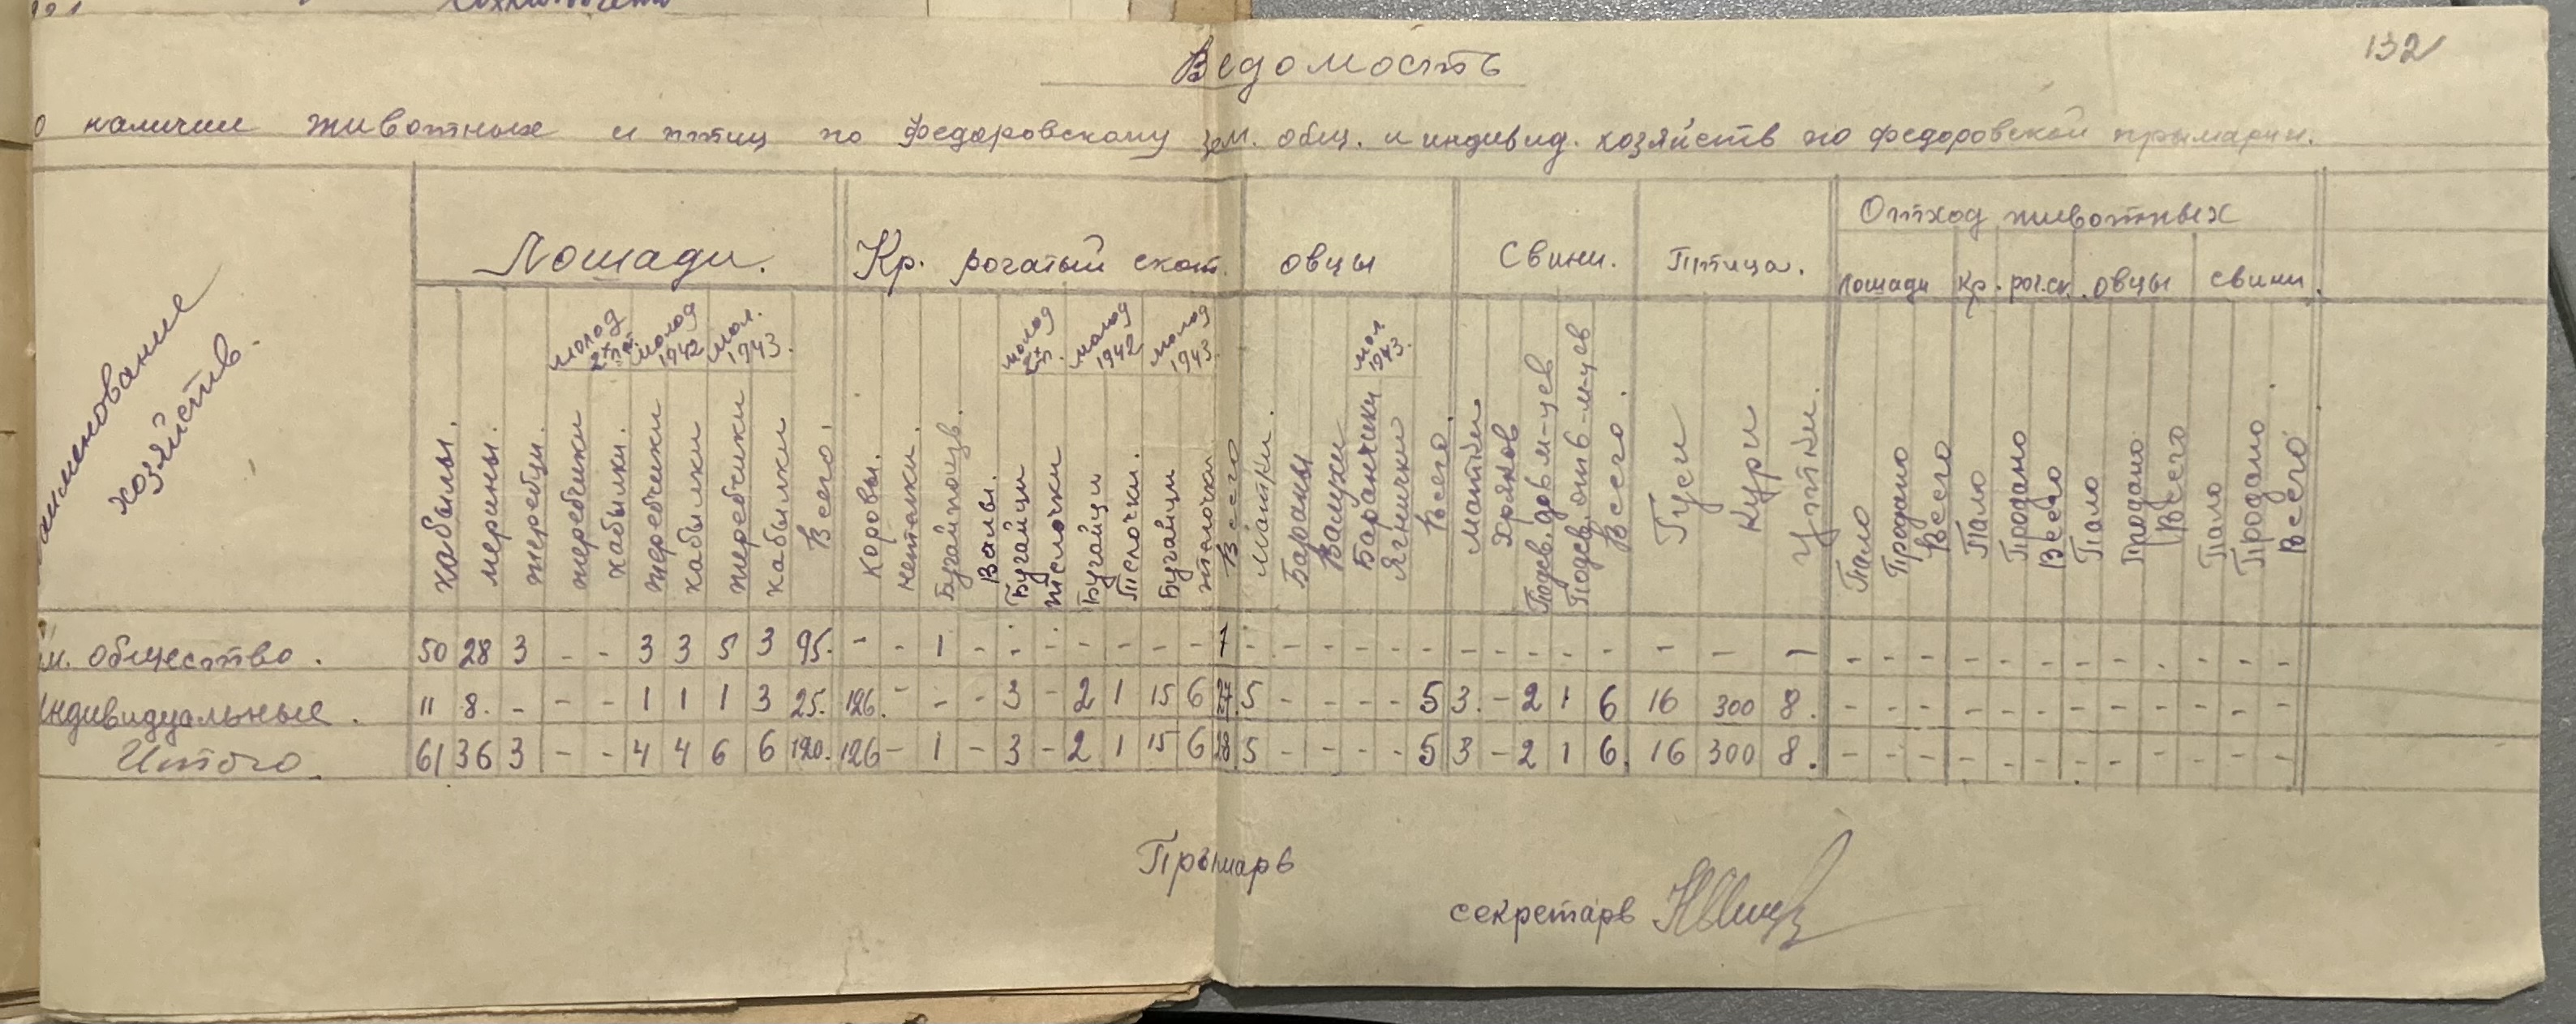 132
Ведомость
о наличии животных и птиц по Федоровскому зем. общ. и индивид. хозяйств по Федоровской прымарии.
Наименование хозяйств.
Лошади.
Кр. рогатый скот.
овцы
Свини.
Птица.
Отход животных
лошади кр. рог.ск. овцы свини.
молод 2х л. молод 1942 мол. 1943.
молод 2х л. молод 1942 молод 1943.
мол 1943.
кабылы. мерины. жеребци. жеребчики кабылки. жеребчики кабылки жеребчики кабылки Всего.
коровы. нетелки. Бугайпоизв. Валы. Бугайци телочки Бугайци Телочки. Бугайци телочки Всего
Матки. Бараны Валухи Баранчики Ягнички Всего.
Матки Хряков Подсв. до 6 м-цев Подсв. от 6-м-цев Всего.
Гуси Кури Утки.
Пало Продано Всего Пало Продано Всего Пало Продано Всего Пало Продано Всего
м. общество. 50 28 3 - - 3 3 5 3 95. - - 1 - - - - - - - 1 - - - - - - - - - - - - - - - - - - - - - - - - - -
Индивидуальные. 11 8. - - - 1 1 1 3 25. 126. - - - 3 - 2 1 15 6 27. 5 - - - - 5 3. - 2 1 6 16 300 8. - - - - - - - - - - - -
Итого. 61 36 3 - - 4 4 6 6 120. 126 - 1 - 3 - 2 1 15 6 28 5 - - - - 5 3 - 2 1 6. 16 300 8. - - - - - - - - - - - -
Прымарь
секретарь